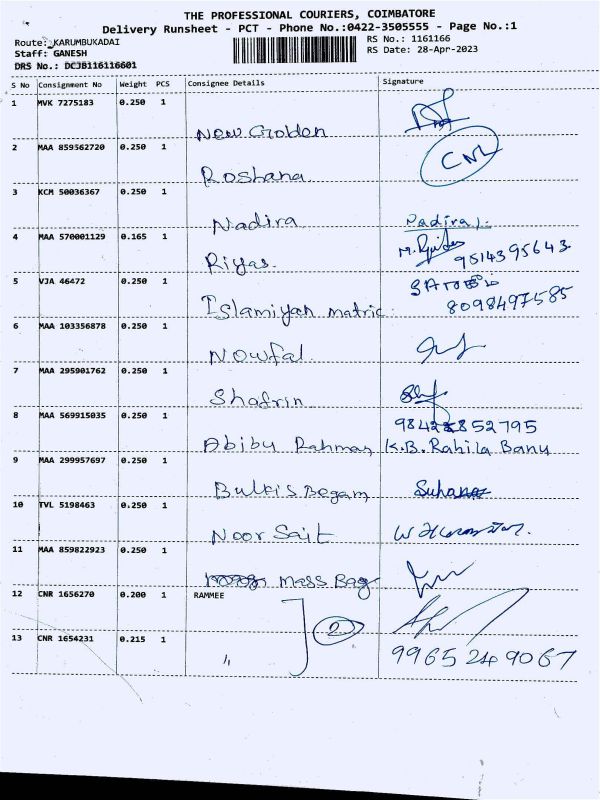 THE PROFESSIONAL COURIERS, COIMBATORE
Delivery Runsheet - PCT - Phone No.:0422-3505555 - Page No.:1
Route: KARUMBUKADAI
RS No.: 1161166
Staff: GANESH
RS Date: 28-Apr-2023
DRS No.: DCJB116116601
S No Consignment No Weight PCS Consignee Details Signature
1 MVK 7275183 0.250 1
New Golden
2 MAA 859562720 0.250 1
CNL
Roshana
3 KCM 50036367 0.250 1
Nadira Nadira
4 MAA 570001129 0.165 1
Riyas 9514395643
5 VJA 46472 0.250 1
Islamiyah matric 8098497585
6 MAA 103356878 0.250 1
Nowfal
7 MAA 295901762 0.250 1
Shafrin
8 MAA 569915035 0.250 1
Abibu Rahman K.B. Rahila Banu
9 MAA 299957697 0.250 1
Bulkis Begam Suhana
10 TVL 5198463 0.250 1
Noor Sait
11 MAA 859822923 0.250 1
Mass Bag
12 CNR 1656270 0.200 1 RAMMEE
2
13 CNR 1654231 0.215 1
" 9965249067